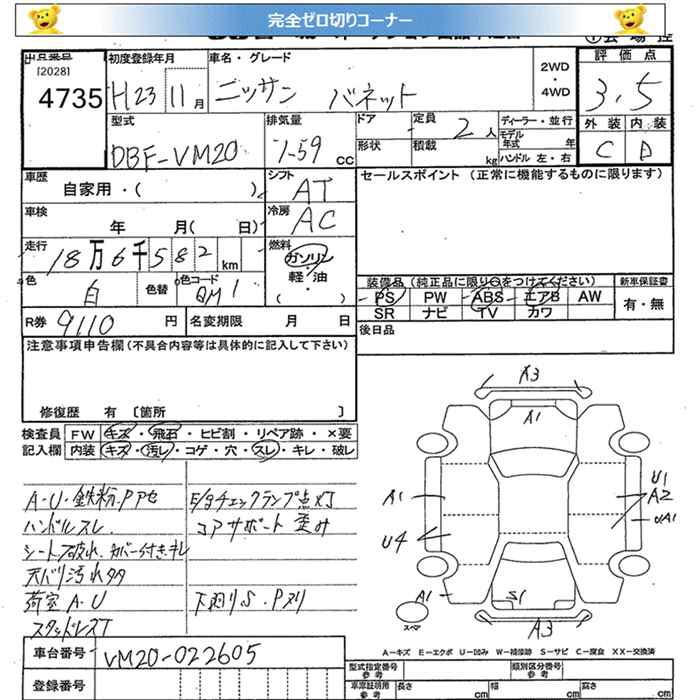 完全ゼロ切りコーナー
出品番号
[2028]
4735
初度登録年月
H23 11月
車名・グレード
ニッサン バネット
2WD
・
4WD
評価点
3.5
外装 内装
C D
型式
DBF-VM20
排気量
1.59 CC
ドア
定員
2人
形状
積載
kg
ディーラー・並行
モデル年式 年
ハンドル 左・右
車歴
自家用・( )
シフト
AT
車検
年 月( 日)
冷房
AC
走行
18万6千582km
燃料
ガソリン
・
軽・油
( )
色
白
色替
色コード
QM1
セールスポイント (正常に機能するものに限ります)
装備品 (純正品に限り○をつけてください)
新車保証書
PS PW ABS エアB AW
SR ナビ TV カワ
有・無
R券 9110 円
名変期限 月 日
後日品
注意事項申告欄(不具合内容等は具体的に記入して下さい)
修復歴 有 〔箇所 〕
検査員 FW キズ・飛石・ヒビ割・リペア跡・×要
記入欄 内装 キズ・汚レ・コゲ・穴・スレ・キレ・破レ
A・U・鉄粉・Pアセ
ハンドルスレ
シート破れ、カバー付き、キレ
天バリ汚れ
荷室A・U
スタッドレス
E/gチェックランプ点灯
コアサポート歪み
下廻りS・Pヌリ
A3
A1
A1
U4
A1
U1
A2
UA1
S1
A3
スペア
A-キズ E-エクボ U-凹み W-補修跡 S-サビ C-腐食 XX-交換済
車台番号 VM20-022605
登録番号
型式指定番号
参考
類別区分番号
参考
車庫証明用
参考
長さ cm 幅 cm 高さ cm